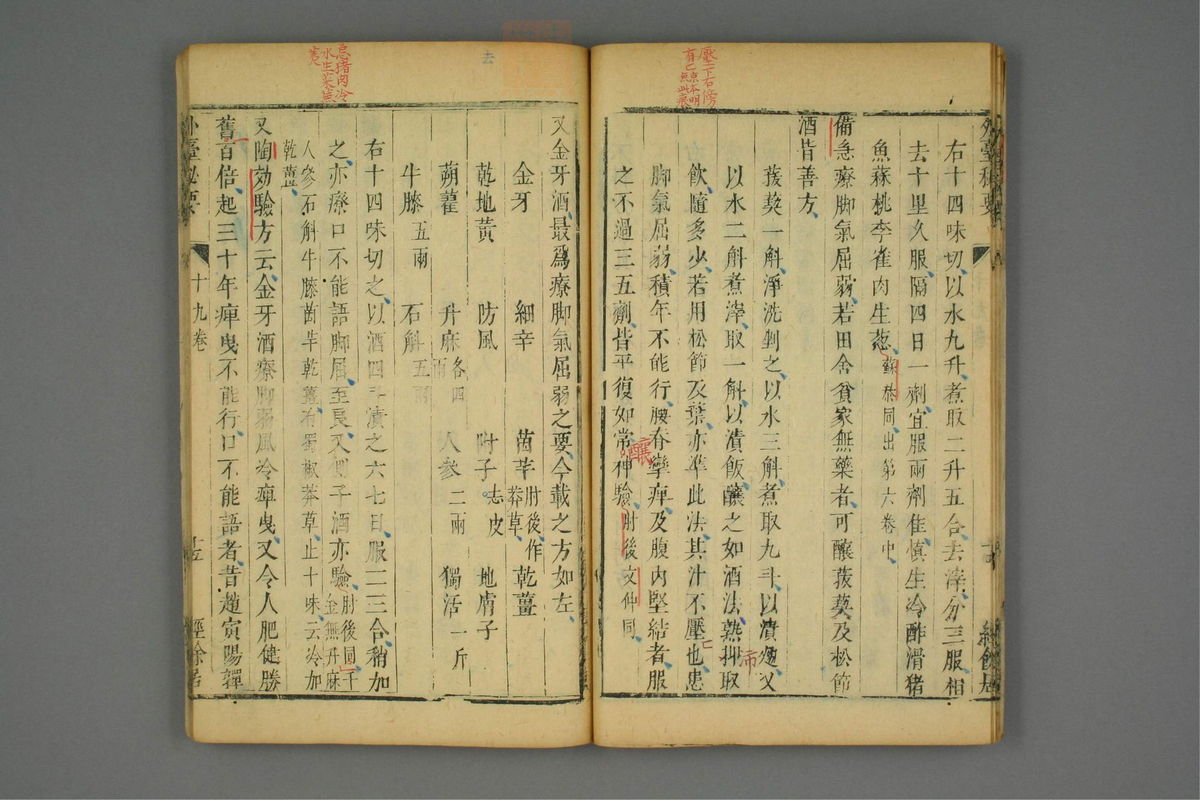 右十四味切以水九升煮取二升五合去滓分三服相
去十里久服隔四日一劑宜服兩劑佳慎生冷酢滑猪
魚蒜桃李雀肉生葱蘇恭同出第六卷中
備急療脚氣屈弱若田舍貧家無藥者可釀菝葜及松節
酒皆善方
菝葜一斛淨洗剉之以水三斛煮取九斗以漬麴又
以水二斛煮滓取一斛以漬飯釀之如酒法熟押取
飲隨多少若用松節及葉亦准此法其汁不壓也患
脚氣屈弱積年不能行腰脊攣痺及腹內堅結者服
之不過三五劑皆平復如常神驗肘後文仲同
又金牙酒最爲療脚氣屈弱之要今載之方如左
金牙 細辛 茵芋 肘後作莽草 乾薑
乾地黃 防風 附子去皮 地膚子
蒴藋 升麻各四兩 人參二兩 獨活一斤
牛膝五兩 石斛五兩
右十四味切之以酒四斗漬之六七日服二三合稍加
之亦療口不能語脚屈至良又側子酒亦驗肘後同千金無升麻
人參石斛牛膝茵芋乾薑有蜀椒莽草止十味云冷加
乾薑
又陶効驗方云金牙酒療脚弱風冷痺曳又令人肥健勝
舊百倍起三十年痺曳不能行口不能語者昔趙寅陽彈
外臺秘要
十九卷
經餘居